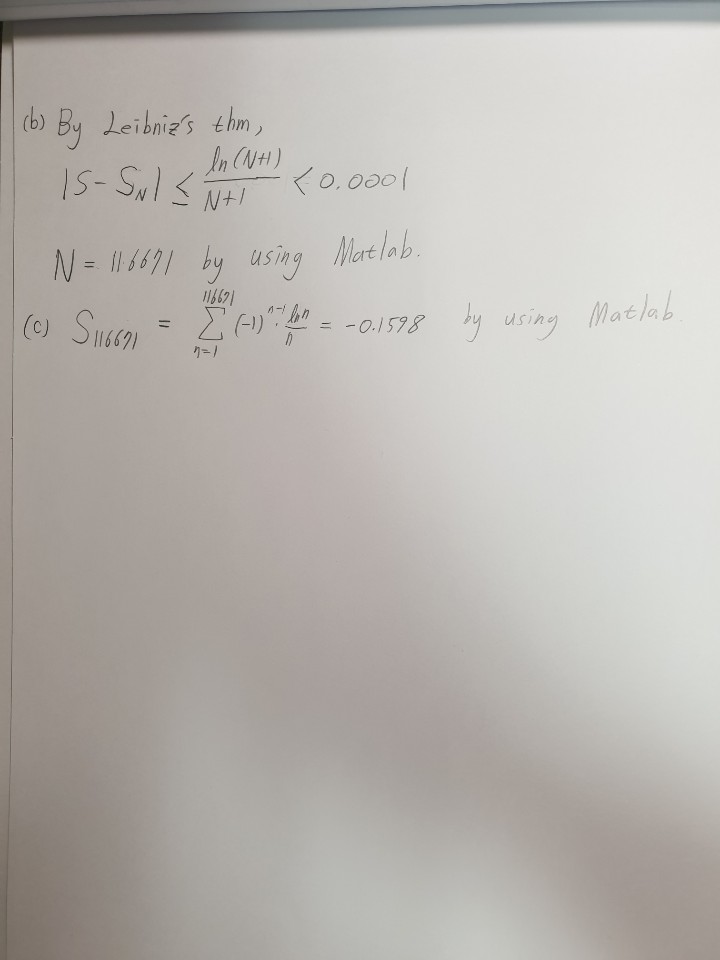 (b) By Leibniz's thm,
|S - S_N| ≤ ln(N+1)/(N+1) < 0.0001
N = 116671 by using Matlab.
(c) S_116671 = ∑_{n=1}^{116671} (-1)^{n-1} · ln n / n = -0.1598 by using Matlab.